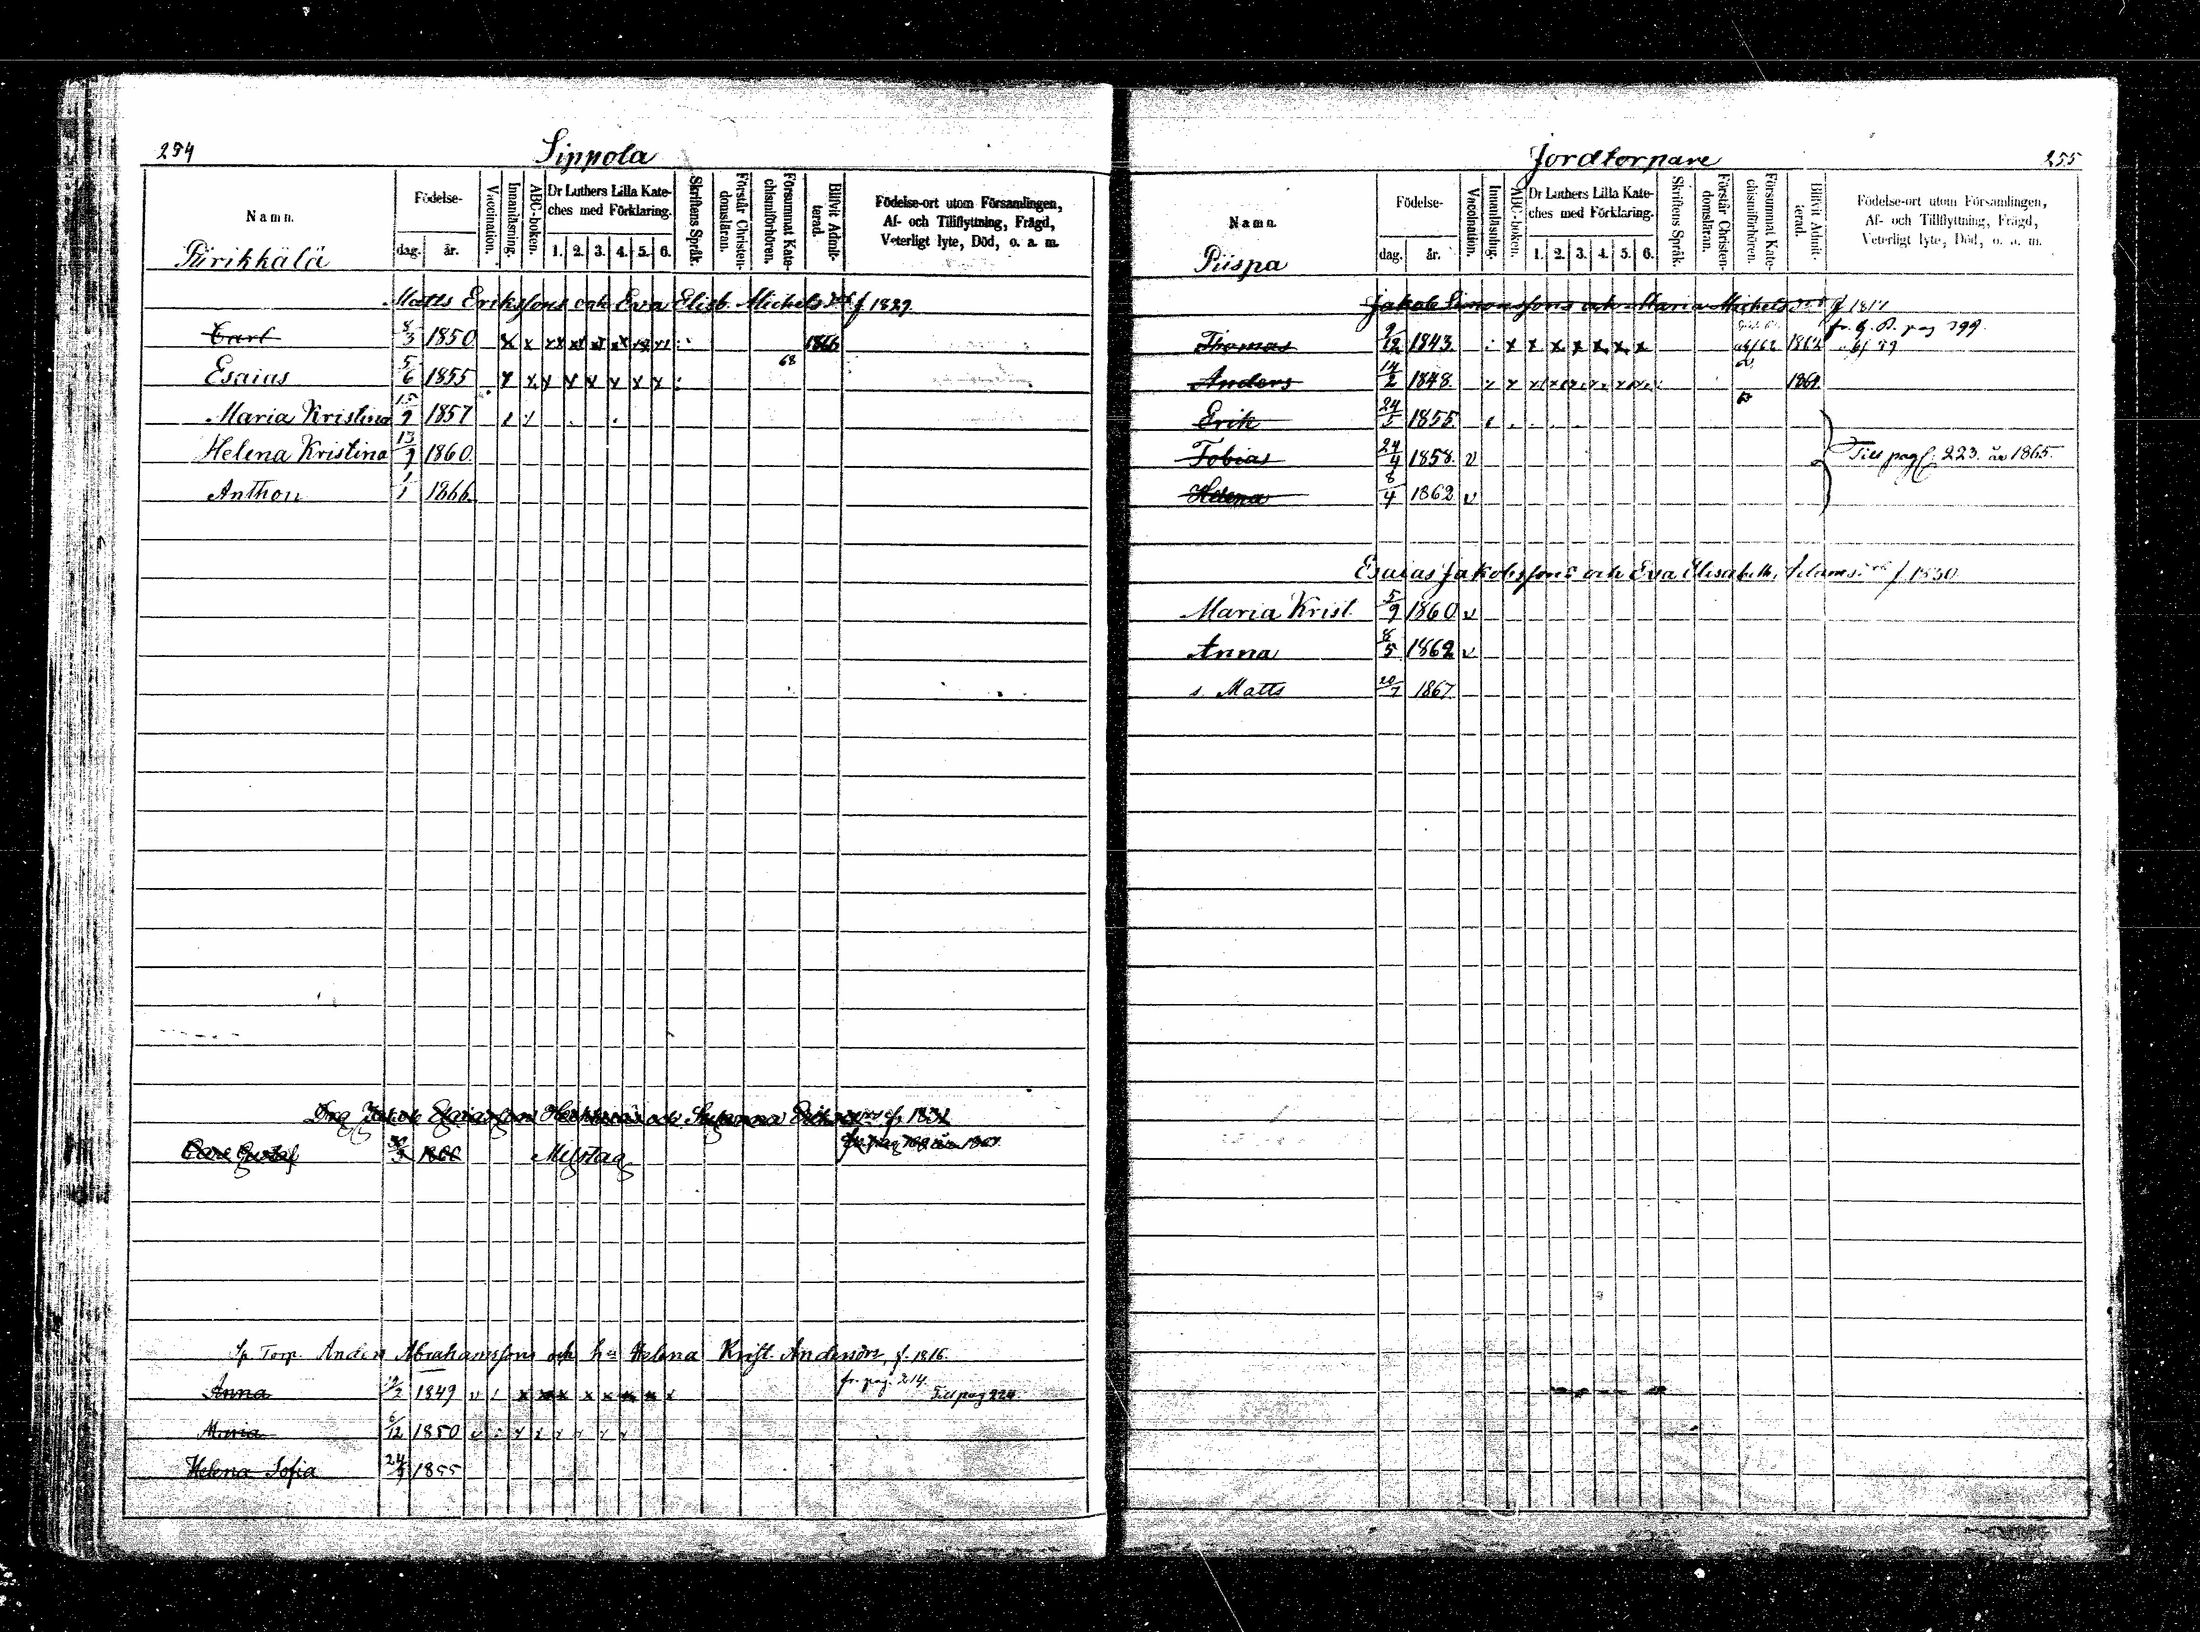 254
Sippola
Namn.
Födelse-
dag.
år.
Vaccination.
Innanläsning.
ABC-boken.
Dr Luthers Lilla Kate-
ches med Förklaring.
1. 2. 3. 4. 5. 6.
Skriftens Språk.
Förstår Christen-
domsläran.
Försummat Kate-
chismiförhören.
Blifvit Admit-
terad.
Födelse-ort utom Församlingen,
Af- och Tillflyttning, Frägd,
Veterligt lyte, Död, o. a. m.
Piirikkälä
Matts Erikssons och Eva Elisb. Michelsd:r f 1829.
Carl 8/3 1850 x x 1866
Esaias 5/6 1855 x x x x x x x x 68
Maria Kristina 15/9 1857
Helena Kristina 13/9 1860.
Anthon 1/1 1866.
Esaiasson och Susanna f. 1831
Carl Gustaf 1866 Misstag fr. pag
Sp Torp. Anders Abrahamssons och h:u Helena Krist. Andersdr, f. 1816.
Anna 1849 v fr. pag. 214. Till pag 224.
Maria 6/12 1850 v
Helena Sofia 24/9 1855
Jordtorpare
255
Namn.
Födelse-
dag.
år.
Vaccination.
Innanläsning.
ABC-boken.
Dr Luthers Lilla Kate-
ches med Förklaring.
1. 2. 3. 4. 5. 6.
Skriftens Språk.
Förstår Christen-
domsläran.
Försummat Kate-
chismiförhören.
Blifvit Admit-
terad.
Födelse-ort utom Församlingen,
Af- och Tillflyttning, Frägd,
Veterligt lyte, Död, o. a. m.
Piispa
Jakob Simonssons och Maria Michelsd:r f 1817
Thomas 9/12 1843. x x x x x x x 62 1862 fr. pag 299.
Anders 14/2 1848. 1864
Erik 24/5 1855.
Tobias 24/4 1858. v Till pag. 223. år 1865.
Helena 8/4 1862 v
Esaias Jakobssons och Eva Elisabeth Adamsdr f 1830
Maria Krist. 5/9 1860 v
Anna 8/5 1862 v
s. Matts 20/7 1867